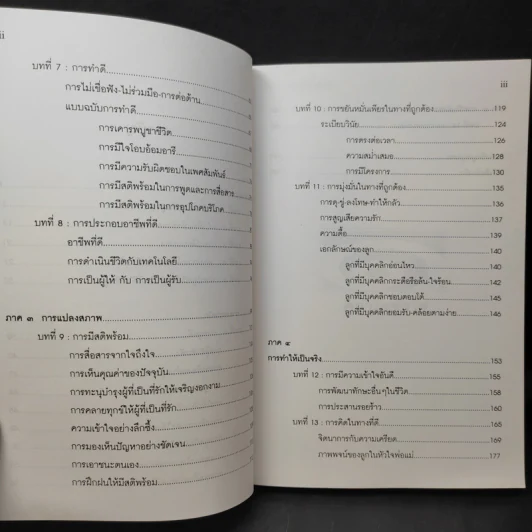 ii
บทที่ 7 : การทำดี
การไม่เชื่อฟัง-ไม่ร่วมมือ-การต่อต้าน
แบบฉบับการทำดี
การเคารพบูชาชีวิต
การมีใจโอบอ้อมอารี
การมีความรับผิดชอบในเพศสัมพันธ์
การมีสติพร้อมในการพูดและการสื่อสาร
การมีสติพร้อมในการอุปโภคบริโภค
บทที่ 8 : การประกอบอาชีพที่ดี
อาชีพที่ดี
การดำเนินชีวิตกับเทคโนโลยี
การเป็นผู้ให้ กับ การเป็นผู้รับ
ภาค ๓ การแปลงสภาพ
บทที่ 9 : การมีสติพร้อม
การสื่อสารจากใจถึงใจ
การเห็นคุณค่าของปัจจุบัน
การทะนุบำรุงผู้ที่เป็นที่รักให้เจริญงอกงาม
การคลายทุกข์ให้ผู้ที่เป็นที่รัก
ความเข้าใจอย่างลึกซึ้ง
การมองเห็นปัญหาอย่างชัดเจน
การเอาชนะตนเอง
การฝึกฝนให้มีสติพร้อม
iii
บทที่ 10 : การขยันหมั่นเพียรในทางที่ถูกต้อง 119
ระเบียบวินัย 124
การตรงต่อเวลา 126
ความสม่ำเสมอ 128
การมีโครงการ 130
บทที่ 11 : การมุ่งมั่นในทางที่ถูกต้อง 135
การดุ-ขู่-ลงโทษ-ทำให้กลัว 136
การสูญเสียความรัก 137
ความดื้อ 139
เอกลักษณ์ของลูก 140
ลูกที่มีบุคคลิกอ่อนไหว 140
ลูกที่มีบุคคลิกกระตือรือล้น-ใจร้อน 142
ลูกที่มีบุคคลิกชอบตอบโต้ 145
ลูกที่มีบุคคลิกยอมรับ-คล้อยตามง่าย 146
ภาค ๔
การทำให้เป็นจริง 153
บทที่ 12 : การมีความเข้าใจอันดี 155
การพัฒนาทักษะอื่นๆในชีวิต 158
การประสานรอยร้าว 160
บทที่ 13 : การคิดในทางที่ดี 165
จิตนาการกับความเครียด 169
ภาพพจน์ของลูกในหัวใจพ่อแม่ 177